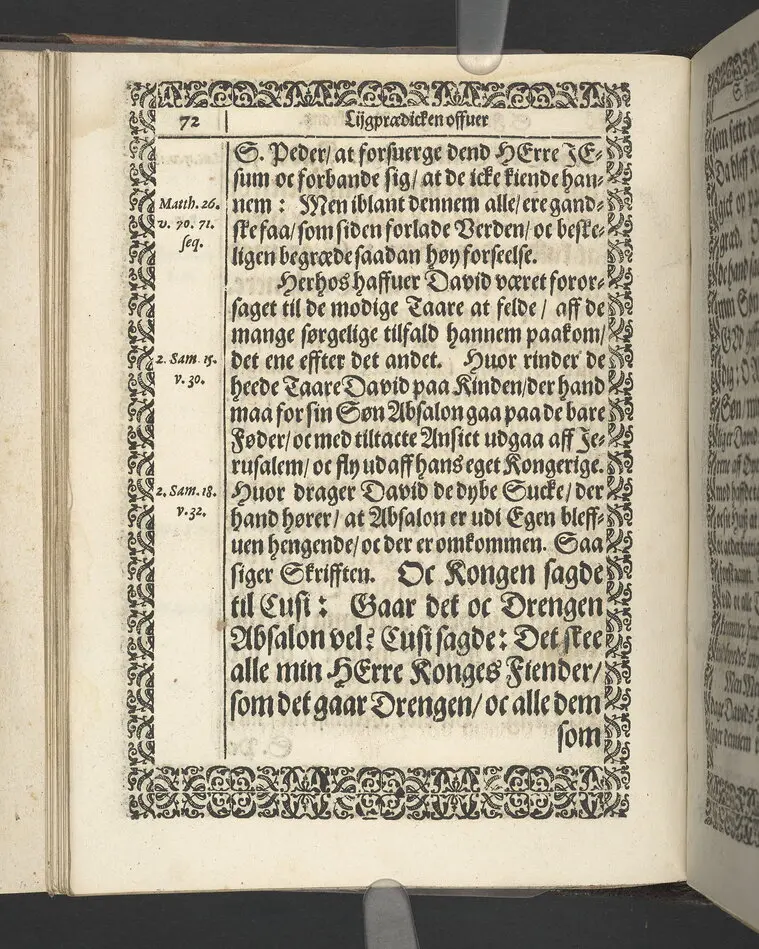 72
Lijgprædicken offuer
S. Peder/ at forsuerge dend HErre JE-
sum oc forbande sig/ at de icke kiende han-
nem : Men iblant dennem alle/ ere gand-
ske faa/ som siden forlade Verden/ oc beske-
ligen begræde saadan høy forseelse.
Herhos haffuer David været foror-
saget til de modige Taare at felde / aff de
mange sørgelige tilfald hannem paakom/
det ene effter det andet. Huor rinder de
heede Taare David paa Kinden/ der hand
maa for sin Søn Absalon gaa paa de bare
Føder/ oc med tiltacte Ansict udgaa aff Je-
rusalem/ oc fly ud aff hans eget Kongerige.
Huor drager David de dybe Sucke/ der
hand hører/ at Absalon er udi Egen bleff-
uen hengende/ oc der er omkommen. Saa
siger Skrifften. Oc Kongen sagde
til Cusi : Gaar det oc Drengen
Absalon vel? Cusi sagde: Det skee
alle min HErre Konges Fiender/
som det gaar Drengen/ oc alle dem
som
Matth. 26.
v. 70. 71.
seq.
2. Sam. 15.
v. 30.
2. Sam. 18.
v. 32.